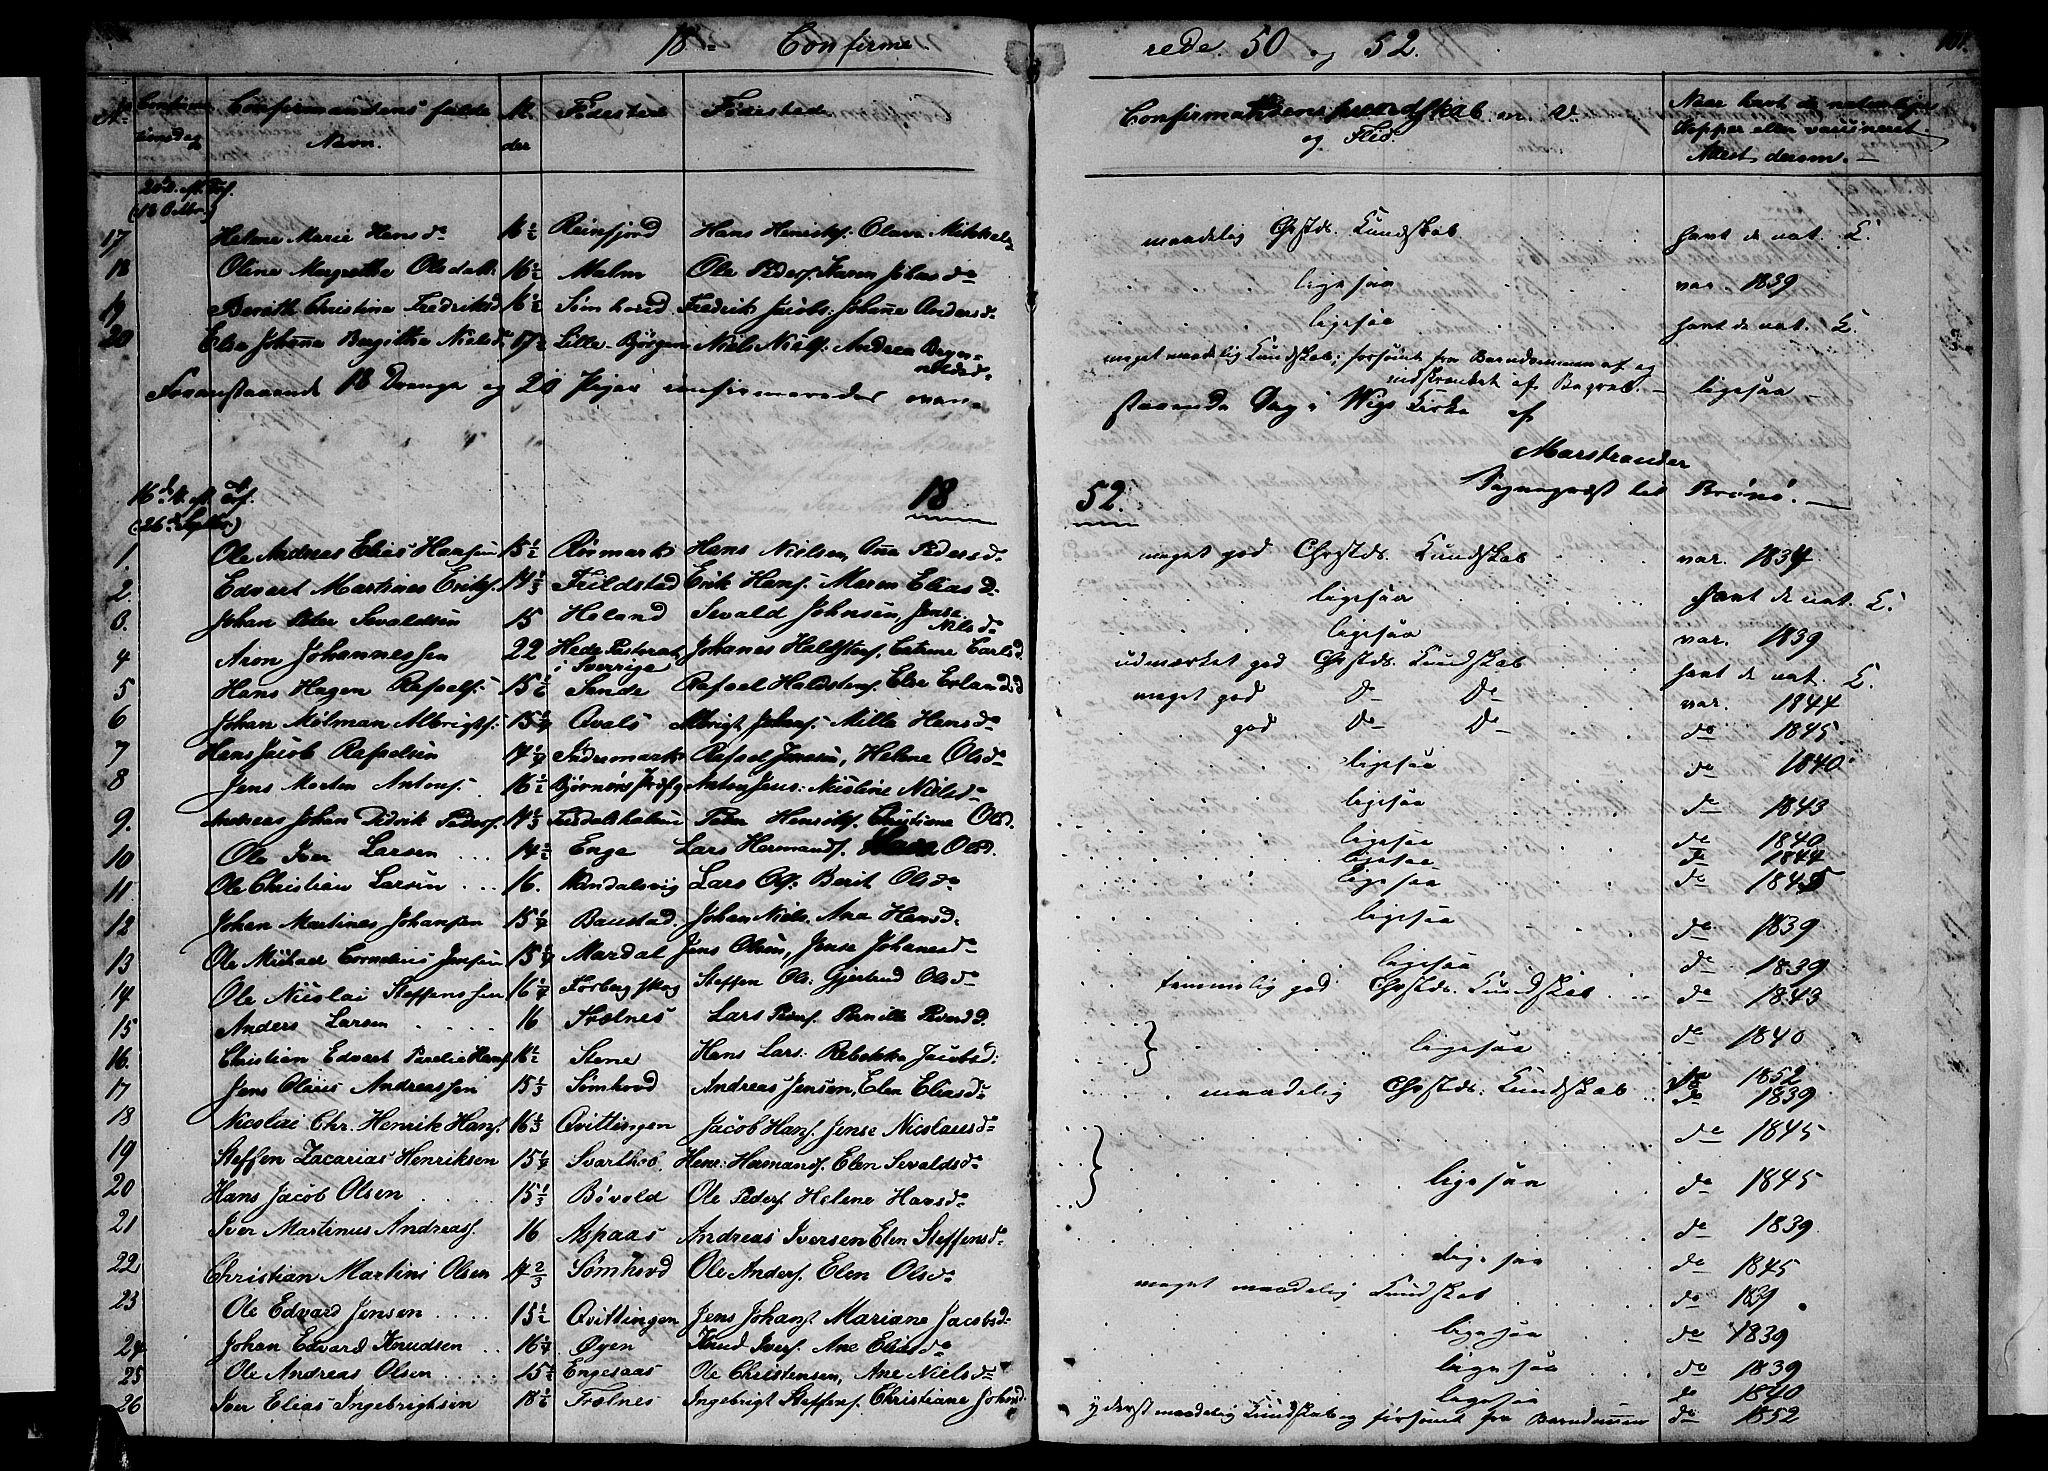 18 Confirme rede 50 og 52. 101.
No Confirmationsdag Confirmandens fulde Navn. Alder Fødested Fødested. Confirmandens Kundskab m. V. og Flid. Naar havt de naturlige Kopper eller vaccineret. Attest derom.
20de S. ef. Trf.
(13 Octbr.)
17 Helene Marie Hansdr 16 1/2 Reinfjord Hans Henriksf. Olava Mikkels maadelig Chrstds. Kundskab havt de nat. K.
18 Oline Margrethe Olsdatt. 16 1/2 Malm Ole Pedersf. Karen Johansdr ligesaa vac. 1839
19 Bereth Christine Fredriksd. 16 1/2 Sømhovd Fredrik Jacobs: Johana Andersdr ligesaa havt de nat. K.
20 Else Johanna Birgitha Nielsd. 17 1/2 Lille-Børgen Niels Nielsf. Andrea Bryn= hildsdr meget maadelig Kundskab; forsømt fra Barndommen af og indskrænket af Begreb. ligesaa
Foranstaaende 18 Drenge og 20 Piger confirmeredes ovenstaaende Dag i Wigs Kirke af
Marstrander
Sognepræst til Brønø.
16de S. ef. Trf. 18 52.
(26de Septbr.)
1. Ole Andreas Elias Hansen 15 1/2 Rørmark Hans Nielsen, Ane Pedersdr meget god Chrstds. Kundskab vac. 1834
2. Edvart Martines Eriks. 14 1/3 Fjeldstad Erik Hansf. Maren Eliasd. ligesaa havt de nat. K.
3. Johan Peter Sevaldsen 15 Heland Sevald Johnsen Jense Nilsdr ligesaa vac. 1839
4 Aron Johannessen 22 Hede Pastorat i Sverige Johanes Heldstenf. Catrine Carlsd. udmærket god Chrstds. Kundskab havt de nat. K.
5 Hans Hagen Rafaelf. 15 1/2 Sande Rafael Haldstenf. Else Erlandsd meget god Do Do vac. 1844
6 Johan Mølman Albrigtf. 15 1/4 Qvals Albrigt Johanf. Mille Hansdr god Do Do do 1845
7 Hans Jacob Rafaelsen 14 1/2 Rafael Jensen, Helene Olsdr ligesaa do 1840
8 Jens Morten Antonf. 16 1/2 Anton Jens: Nicoline Nielsdr ligesaa do 1843
9. Andreas Johan Didrik Pedersf. 14 1/3 Peter Henrikf. Christiane Olsd. ligesaa do 1840
10 Ole Iver Larsen 14 1/2 Enge Lars Hermandf. Olsd. ligesaa do 1844
11 Ole Christian Larsen 16. Vendalsvig Lars Olsf. Berit Olsdr ligesaa do 1845
12 Johan Martines Johansen 15 1/4 Baustad Johan Niels. Ane Hansd. ligesaa do 1839
13 Ole Michael Cornelius Jensen 15 1/4 Mardal Jens Olsen, Jense Johanesdr ligesaa do 1839
14 Ole Nicolai Steffenssen 16 1/4 Forbergskog Steffen Ols. Gjertrud Olsdr temmelig god Chrstds. Kundskab do 1843
15 Anders Larsen 16 Trælnes Lars Pedersf. Pernille Pedersd. do 1840
16. Christian Edvart Parelie Hansf. 16 1/2 Stene Hans Lars: Rebekka Jacobsd: ligesaa do 1852
17 Jens Olaus Andreassen 15 1/3 Sømhovd Andreas Jensen, Elen Eliasdr maadelig Chrstds. Kundskab do 1839
18 Nicolai Chr. Henrik Hansf. 16 1/3 Qvittingen Jacob Hansf. Jense Nicolausdr do 1845
19 Steffen Zacarias Henriksen 15 1/4 Svarthob. Henr: Hermandsf. Elen Sevaldsdr ligesaa do 1845
20 Hans Jacob Olsen 15 1/3 Bøvold Ole Pedersf. Helene Hansdr
21 Iver Martinus Andreasf. 16 Aspaas Andreas Iversen Elen Steffensdr do 1839
22 Christian Martins Olsen 14 2/3 Sømhovd Ole Andersf. Elen Olsdr ligesaa do 1845
23 Ole Edvard Jensen 15 1/2 Qvittingen Jens Johansf Mariane Jacobsdr meget maadelig Kundskab do 1839
24 Johan Edvard Knudsen 16 1/4 Øyen Knud Iversf. Ane Eliasdr ligesaa do 1839
25 Ole Andreas Olsen 15 1/2 Engesaas Ole Christensen, Ane Nielsdr ligesaa do 1839
26 Iver Elias Ingebrigtsen 18 1/2 Trælnes Ingebrigt Steffensf. Christiane Johansd. ligesaa do 1840
yderst maadelig Kundskab og forsømt fra Barndommen do 1852